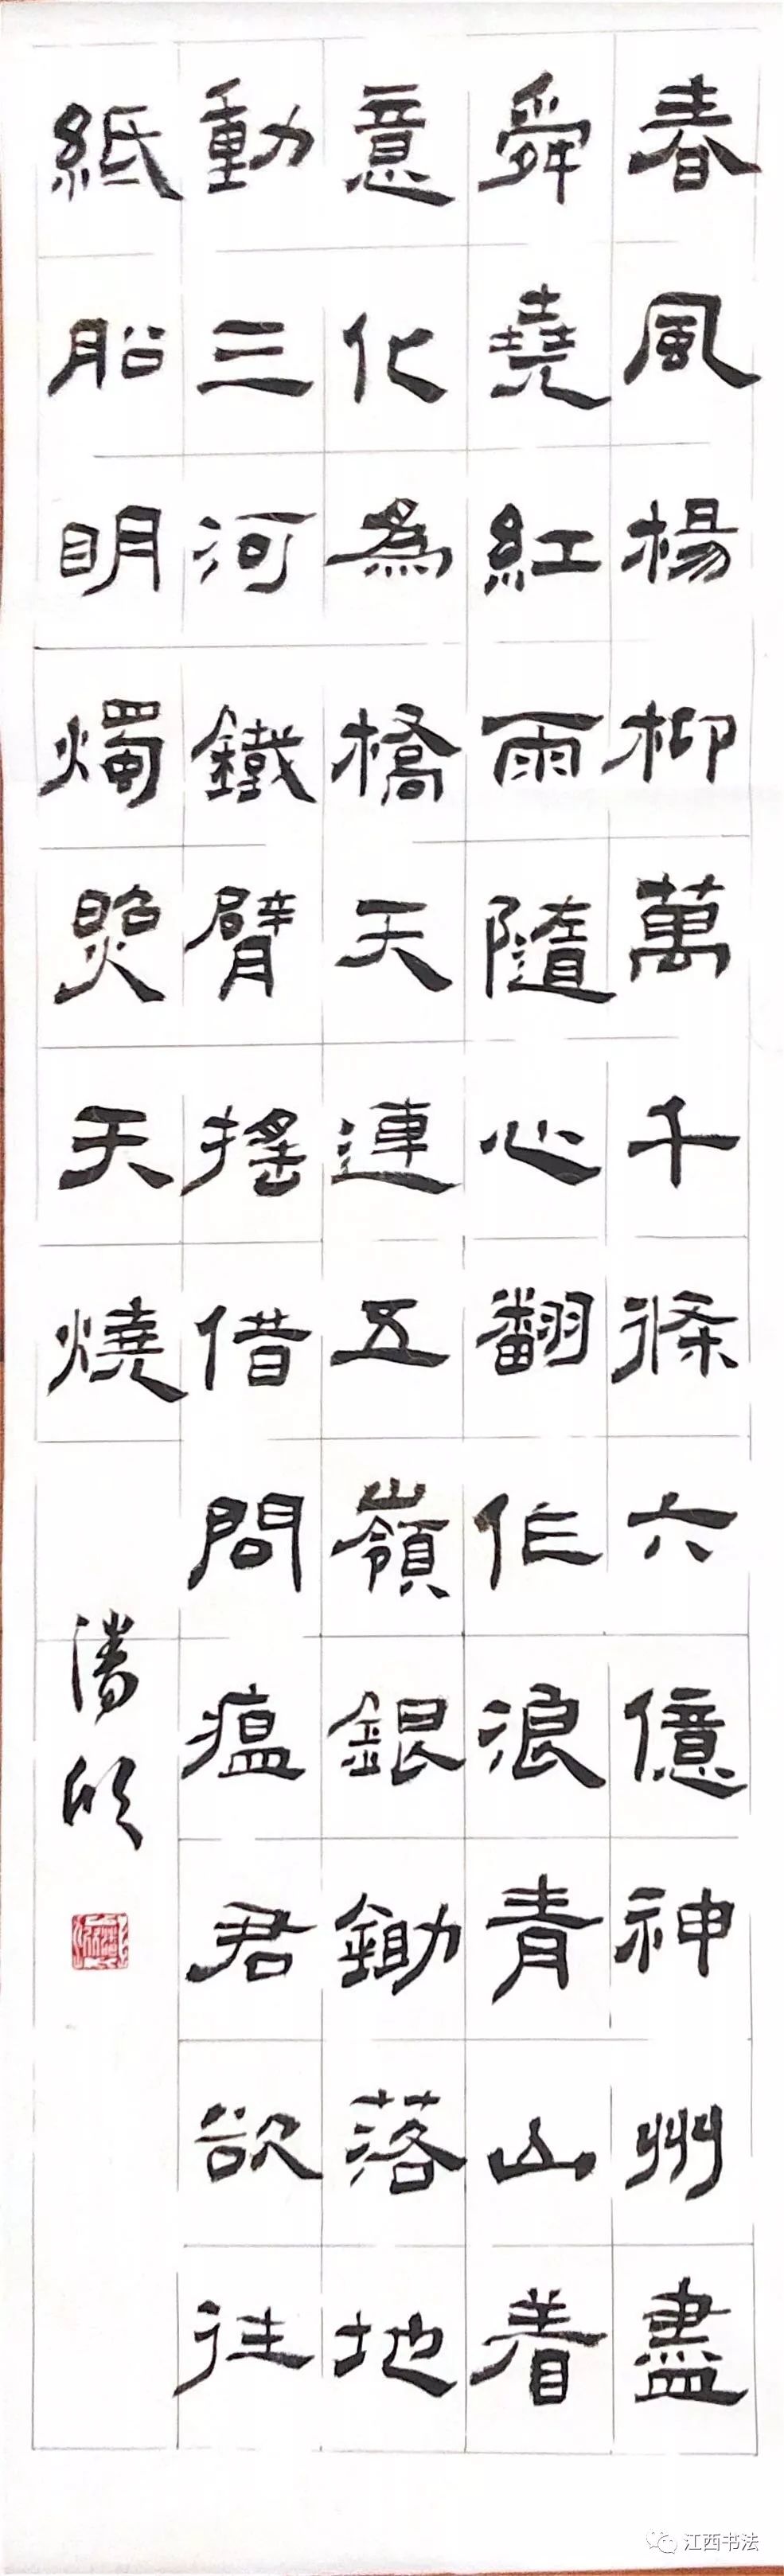 春風楊柳萬千條六億神州盡
舜堯紅雨隨心翻作浪青山着
意化為橋天連五嶺銀鋤落地
動三河鐵臂搖借問瘟君欲往
紙船明燭照天燒
潘欣
江西书法